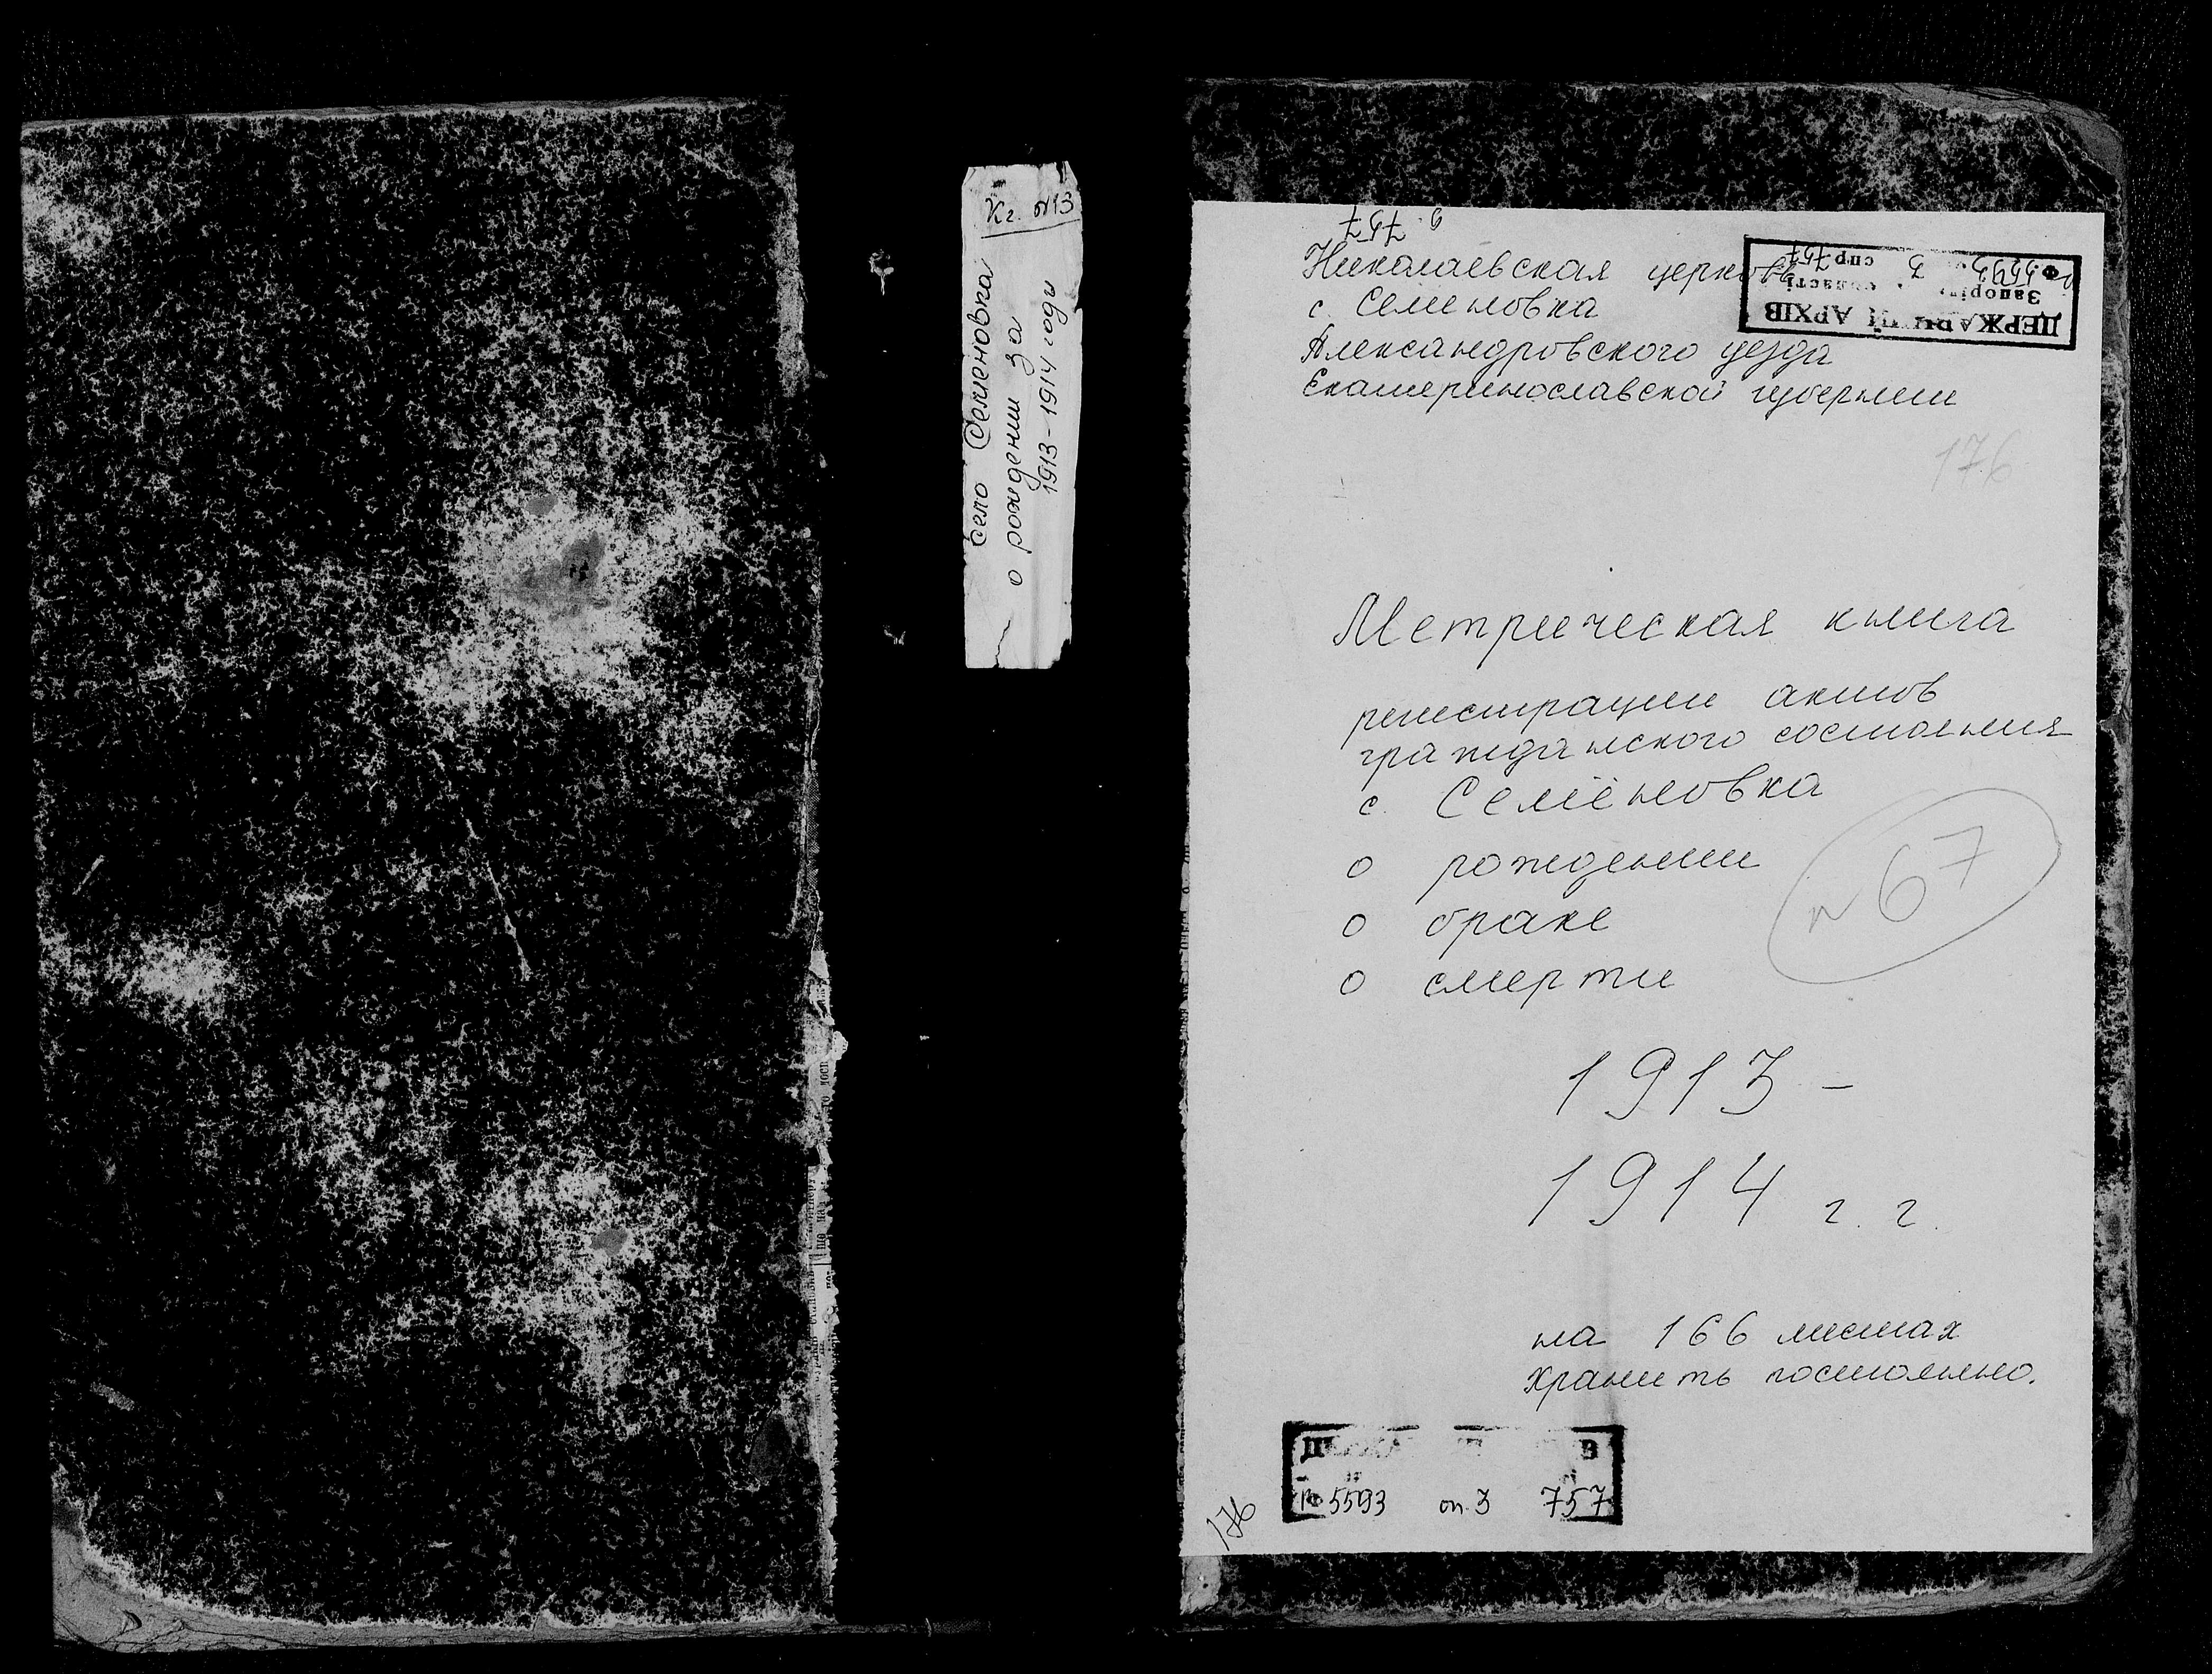 Кг. №13
село Семеновка
о рождении за
1913-1914 годы
д. 757
Николаевская церковь
с. Семеновка
Александровского уезда
Екатеринославской губернии
ДЕРЖАВНИЙ АРХІВ
Запорізької області
Ф 5593 3 спр 757
176
Метрическая книга
регистрации актов
гражданского состояния
с. Семёновка
о рождении
о браке
о смерти
№67
1913 -
1914 г. г.
на 166 листах
хранить постоянно.
Ф 5593 оп. 3 757
176